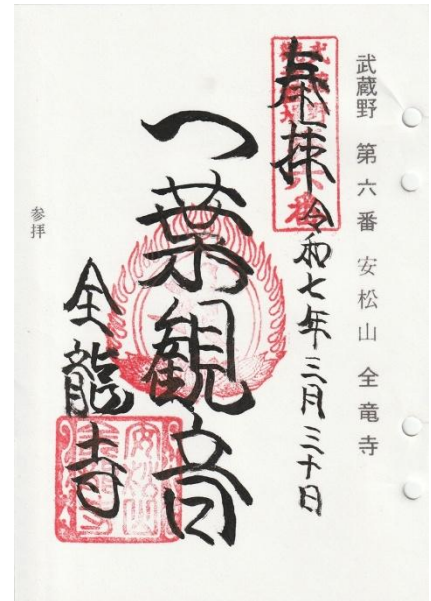 武蔵野 第六番 安松山 全竜寺
奉拝 令和七年三月三十日
一葉観音
全龍寺
参拝
安松山